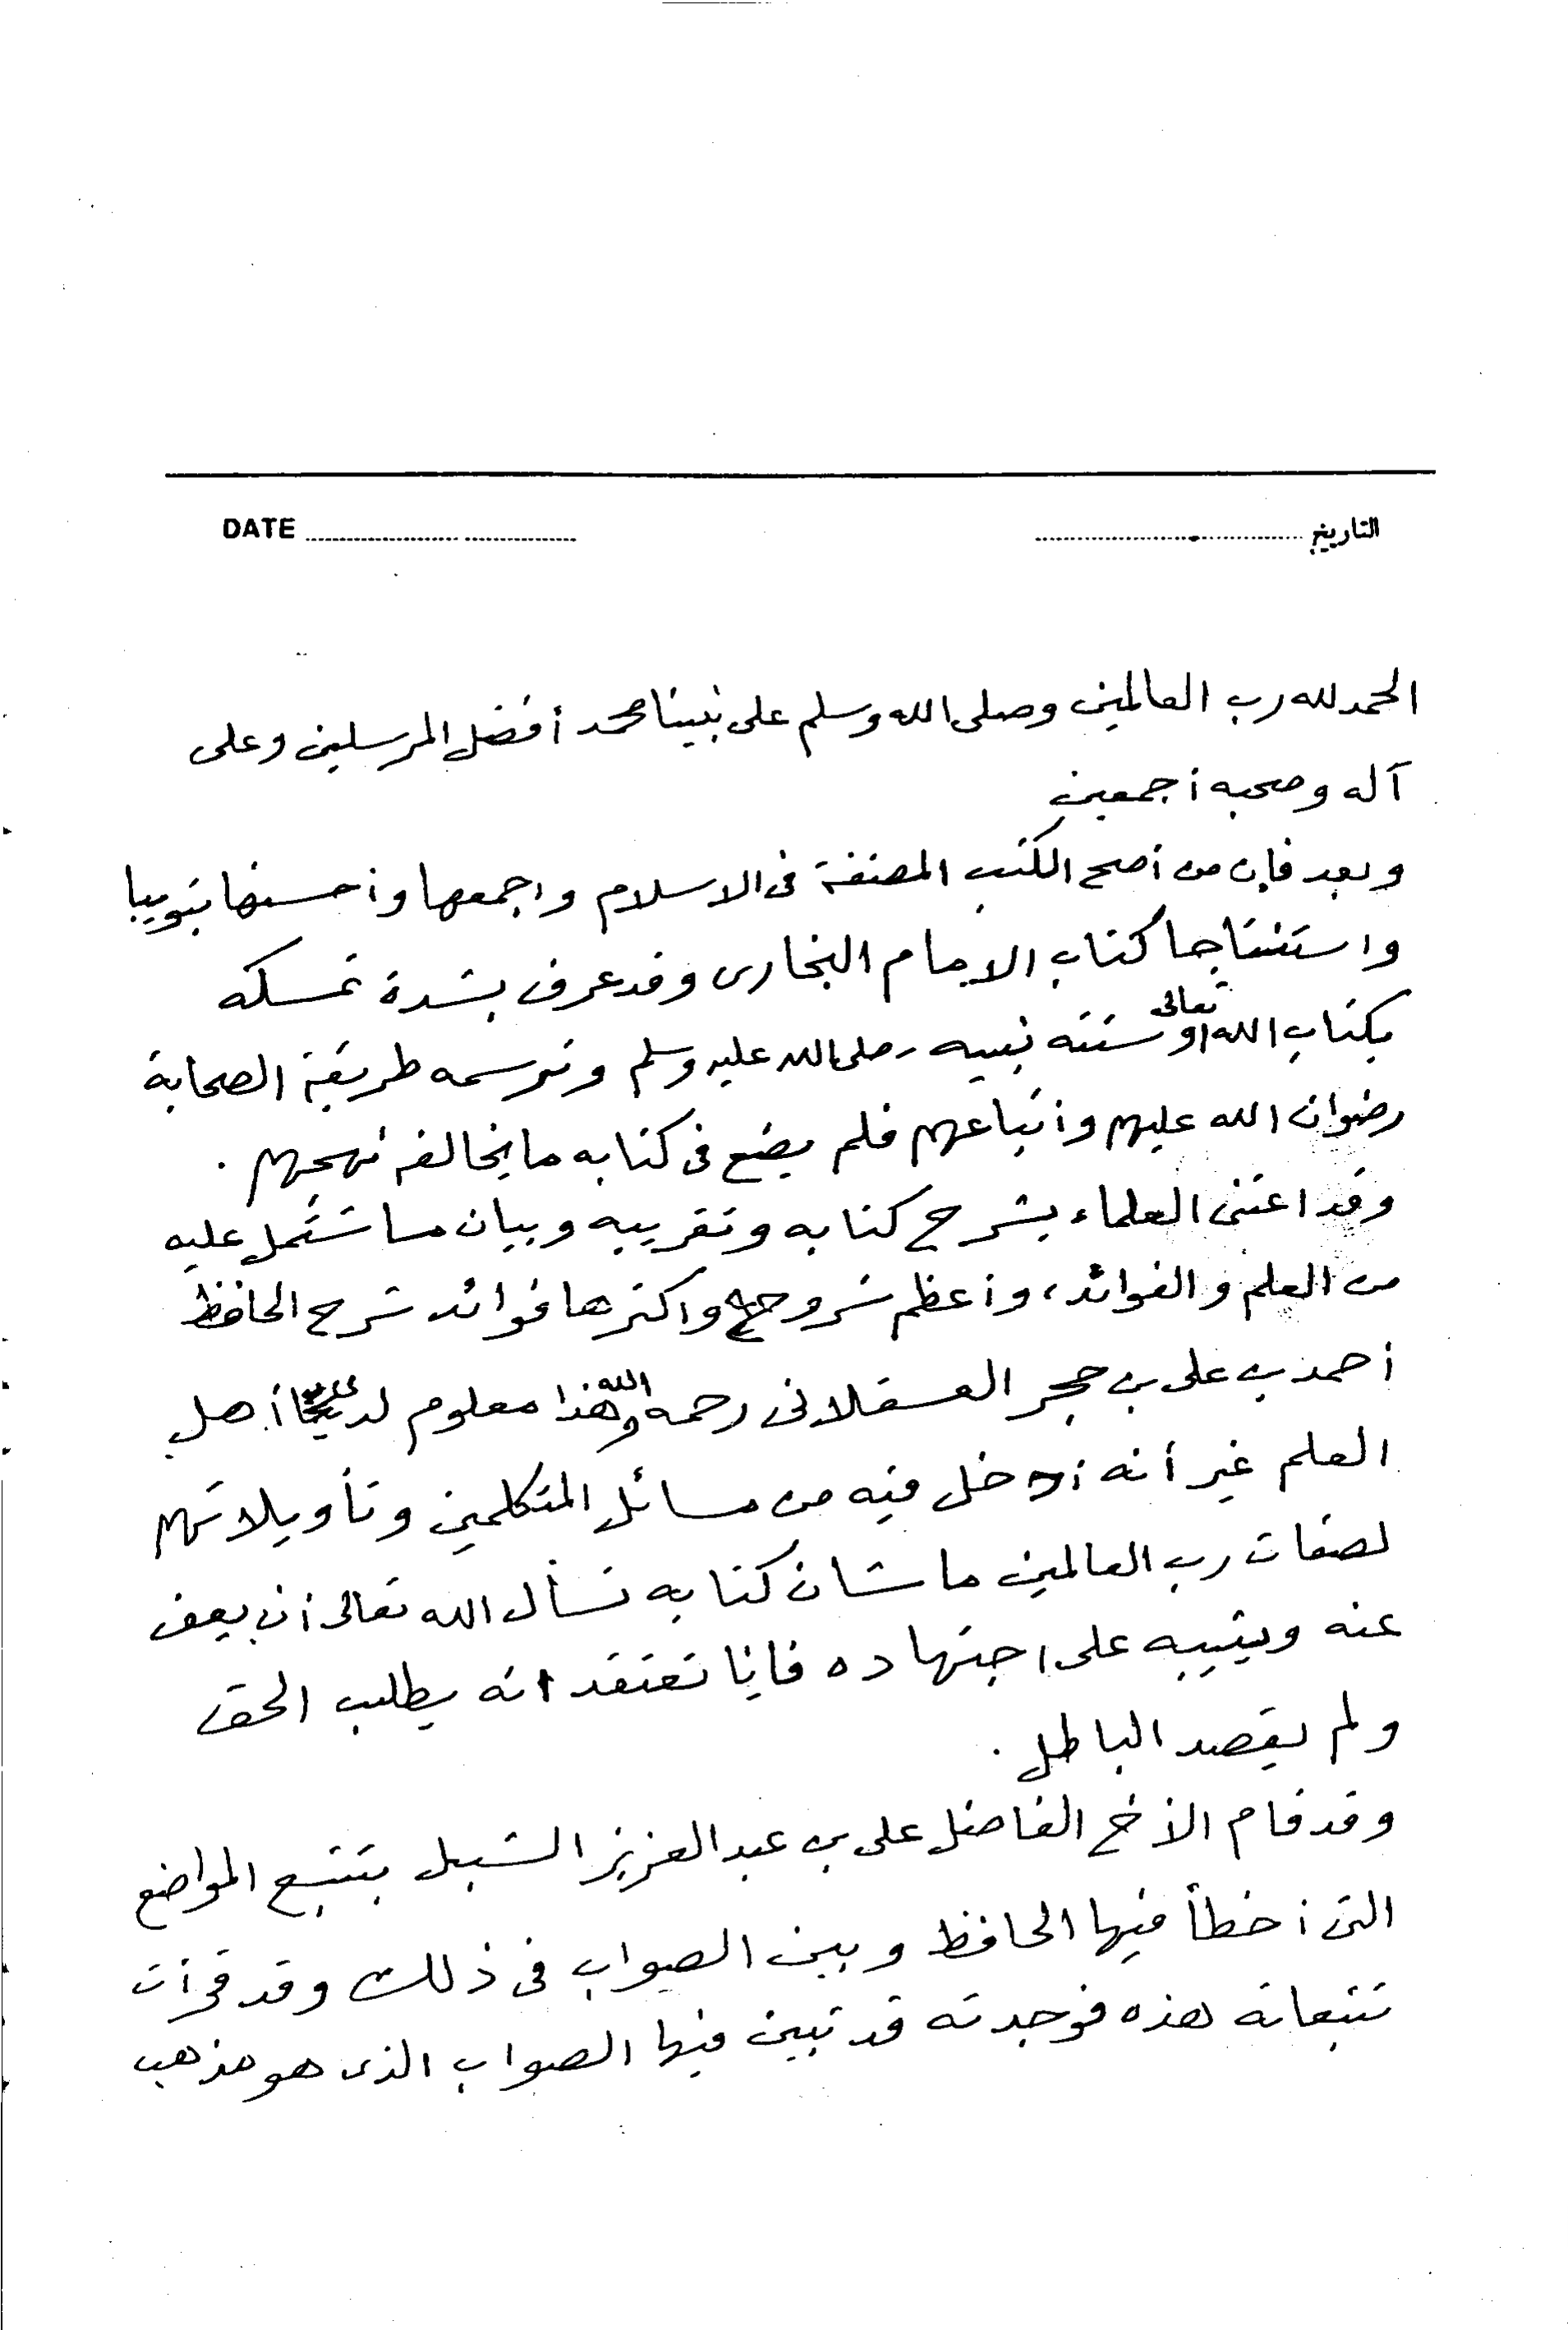 التاريخ
DATE
الحمد لله رب العالمين وصلى الله وسلم على نبينا محمد أفضل المرسلين وعلى
آله وصحبه أجمعين
وبعد فإن من أصح الكتب المصنفة فى الاسلام واجمعها وأحسنها تبويبا
واستنتاجا كتاب الامام البخارى وقد عرف بشدة تمسكه
بكتاب الله تعالى وسنته نبيه صلى الله عليه وسلم وترسمه طريقة الصحابة
رضوان الله عليهم وأتباعهم فلم يضع فى كتابه ما يخالف نهجهم .
وقد اعتنى العلماء بشرح كتابه وتقريبه وبيان ما اشتمل عليه
من العلم والفوائد، وأعظم شروحه واكثرها فوائد شرح الحافظ
أحمد بن على بن حجر العسقلانى رحمه الله وهذا معلوم لدى أهل
العلم غير أنه أدخل فيه من مسائل المتكلمين وتأويلاتهم
لصفات رب العالمين ما شان كتابه نسأل الله تعالى أن يعف
عنه ويثيبه على اجتهاده فانا نعتقد انه يطلب الحق
ولم يقصد الباطل .
وقد قام الأخ الفاضل على بن عبد العزيز الشبل بتتبع المواضع
التى أخطأ فيها الحافظ وبين الصواب فى ذلك وقد قرأت
تتبعاته هذه فوجدته قد تبين فيها الصواب الذى هو مذهب